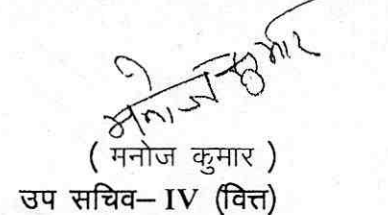 मनोज कुमार
( मनोज कुमार )
उप सचिव– IV (वित्त)